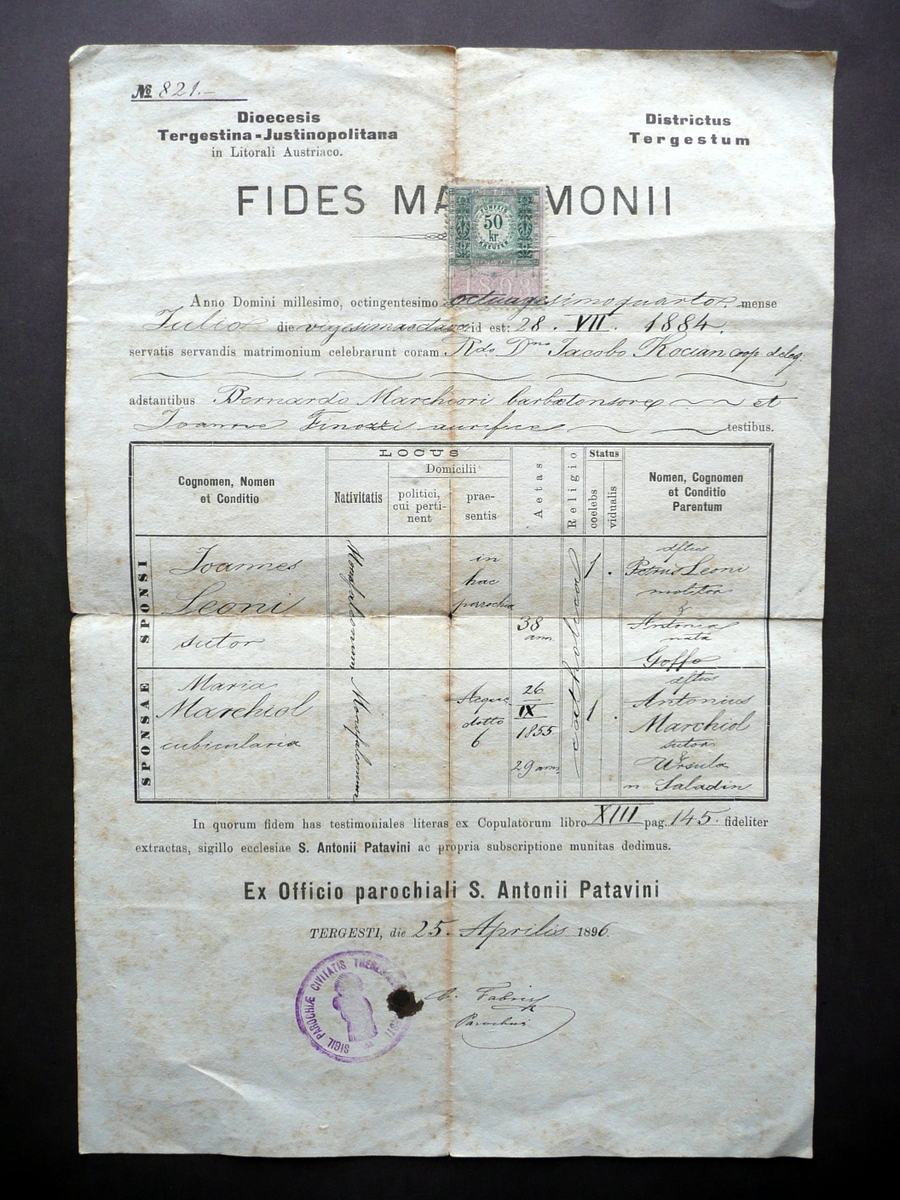 № 821.-
Dioecesis
Tergestina-Justinopolitana
in Litorali Austriaco.
Districtus
Tergestum
FIDES MA MONII
50
kr
1893
Anno Domini millesimo, octingentesimo octuagesimoquarto mense
Julio die vigesimaoctava id est: 28. VII. 1884.
servatis servandis matrimonium celebrarunt coram Rdo Dno Jacobo Kocian coop deleg.
adstantibus Bernardo Marchiori barbætonsore et
Joanne Finozzi aurifice testibus.
Cognomen, Nomen
et Conditio
LOCUS
Nativitatis
Domicilii
politici,
cui perti-
nent
prae-
sentis
Aetas
Religio
Status
coelebs
vidualis
Nomen, Cognomen
et Conditio
Parentum
SPONSI
Joannes
Leoni
sutor
Monfalconum
in
hac
parochia
38
ann.
catholica
1 .
dftus
Petrus Leoni
molitor
&
Antonia
nata
Goffo
SPONSAE
Maria
Marchiol
cubicularia
Monfalconum
Acque
dotto
6
26
IX
1855
29 ann.
1 .
dftus
Antonius
Marchiol
sutor
Ursula
n. Saladin
In quorum fidem has testimoniales literas ex Copulatorum libro XIII pag. 145. fideliter
extractas, sigillo ecclesiae S. Antonii Patavini ac propria subscriptione munitas dedimus.
Ex Officio parochiali S. Antonii Patavini
TERGESTI, die 25. Aprilis 1896.
SIGIL PAROCHIÆ CIVITATIS
Parochus